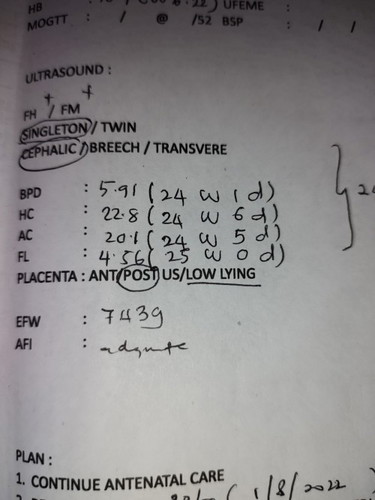 HB
UFEME :
MOGTT : / @ /52 BSP : / /
ULTRASOUND :
+ +
FH / FM
SINGLETON / TWIN
CEPHALIC / BREECH / TRANSVERE
BPD : 5.91 (24 w 1 d)
HC : 22.8 (24 w 6 d)
AC : 20.1 (24 w 5 d)
FL : 4.56 (25 w 0 d)
PLACENTA : ANT/POST US/LOW LYING
EFW : 743g
AFI :
PLAN :
1. CONTINUE ANTENATAL CARE
1/8/2022